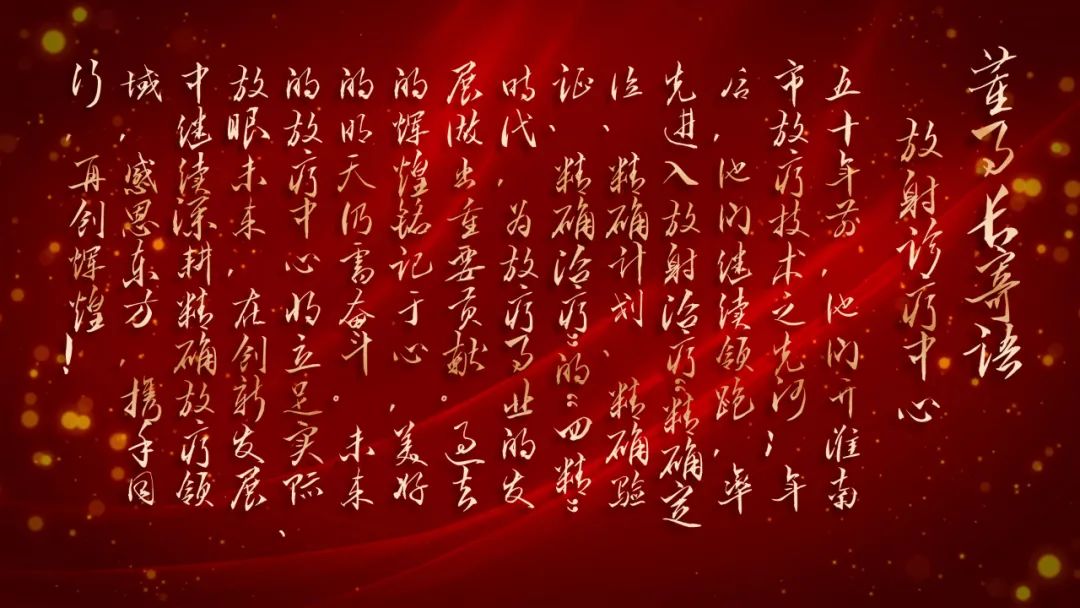 董事长寄语
放射诊疗中心
五十年前,他们开淮南
市放疗技术之先河;年
后,他们继续领跑,率
先进入放射治疗“精确定
位、精确计划、精确验
证、精确治疗”的“四精”
时代,为放疗事业的发
展做出重要贡献。过去
的辉煌铭记于心,美好
的明天仍需奋斗。未来
的放疗中心将立足实际、
放眼未来,在创新发展
中继续深耕精确放疗领
域,感恩东方,携手同
行,再创辉煌!